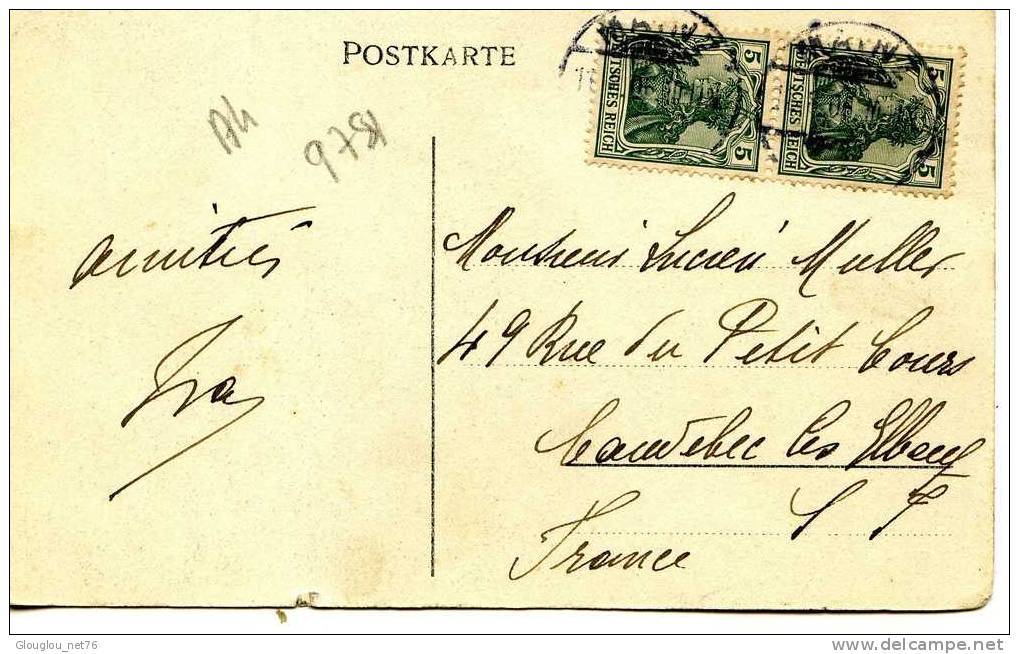 POSTKARTE
5
DEUTSCHES REICH
5
5
DEUTSCHES REICH
5
A4
B76
amitiés
Monsieur Lucien Muller
49 Rue du Petit Cours
Caudebec les Elbeuf
S I
France
Glouglou_net76
www.delcampe.net